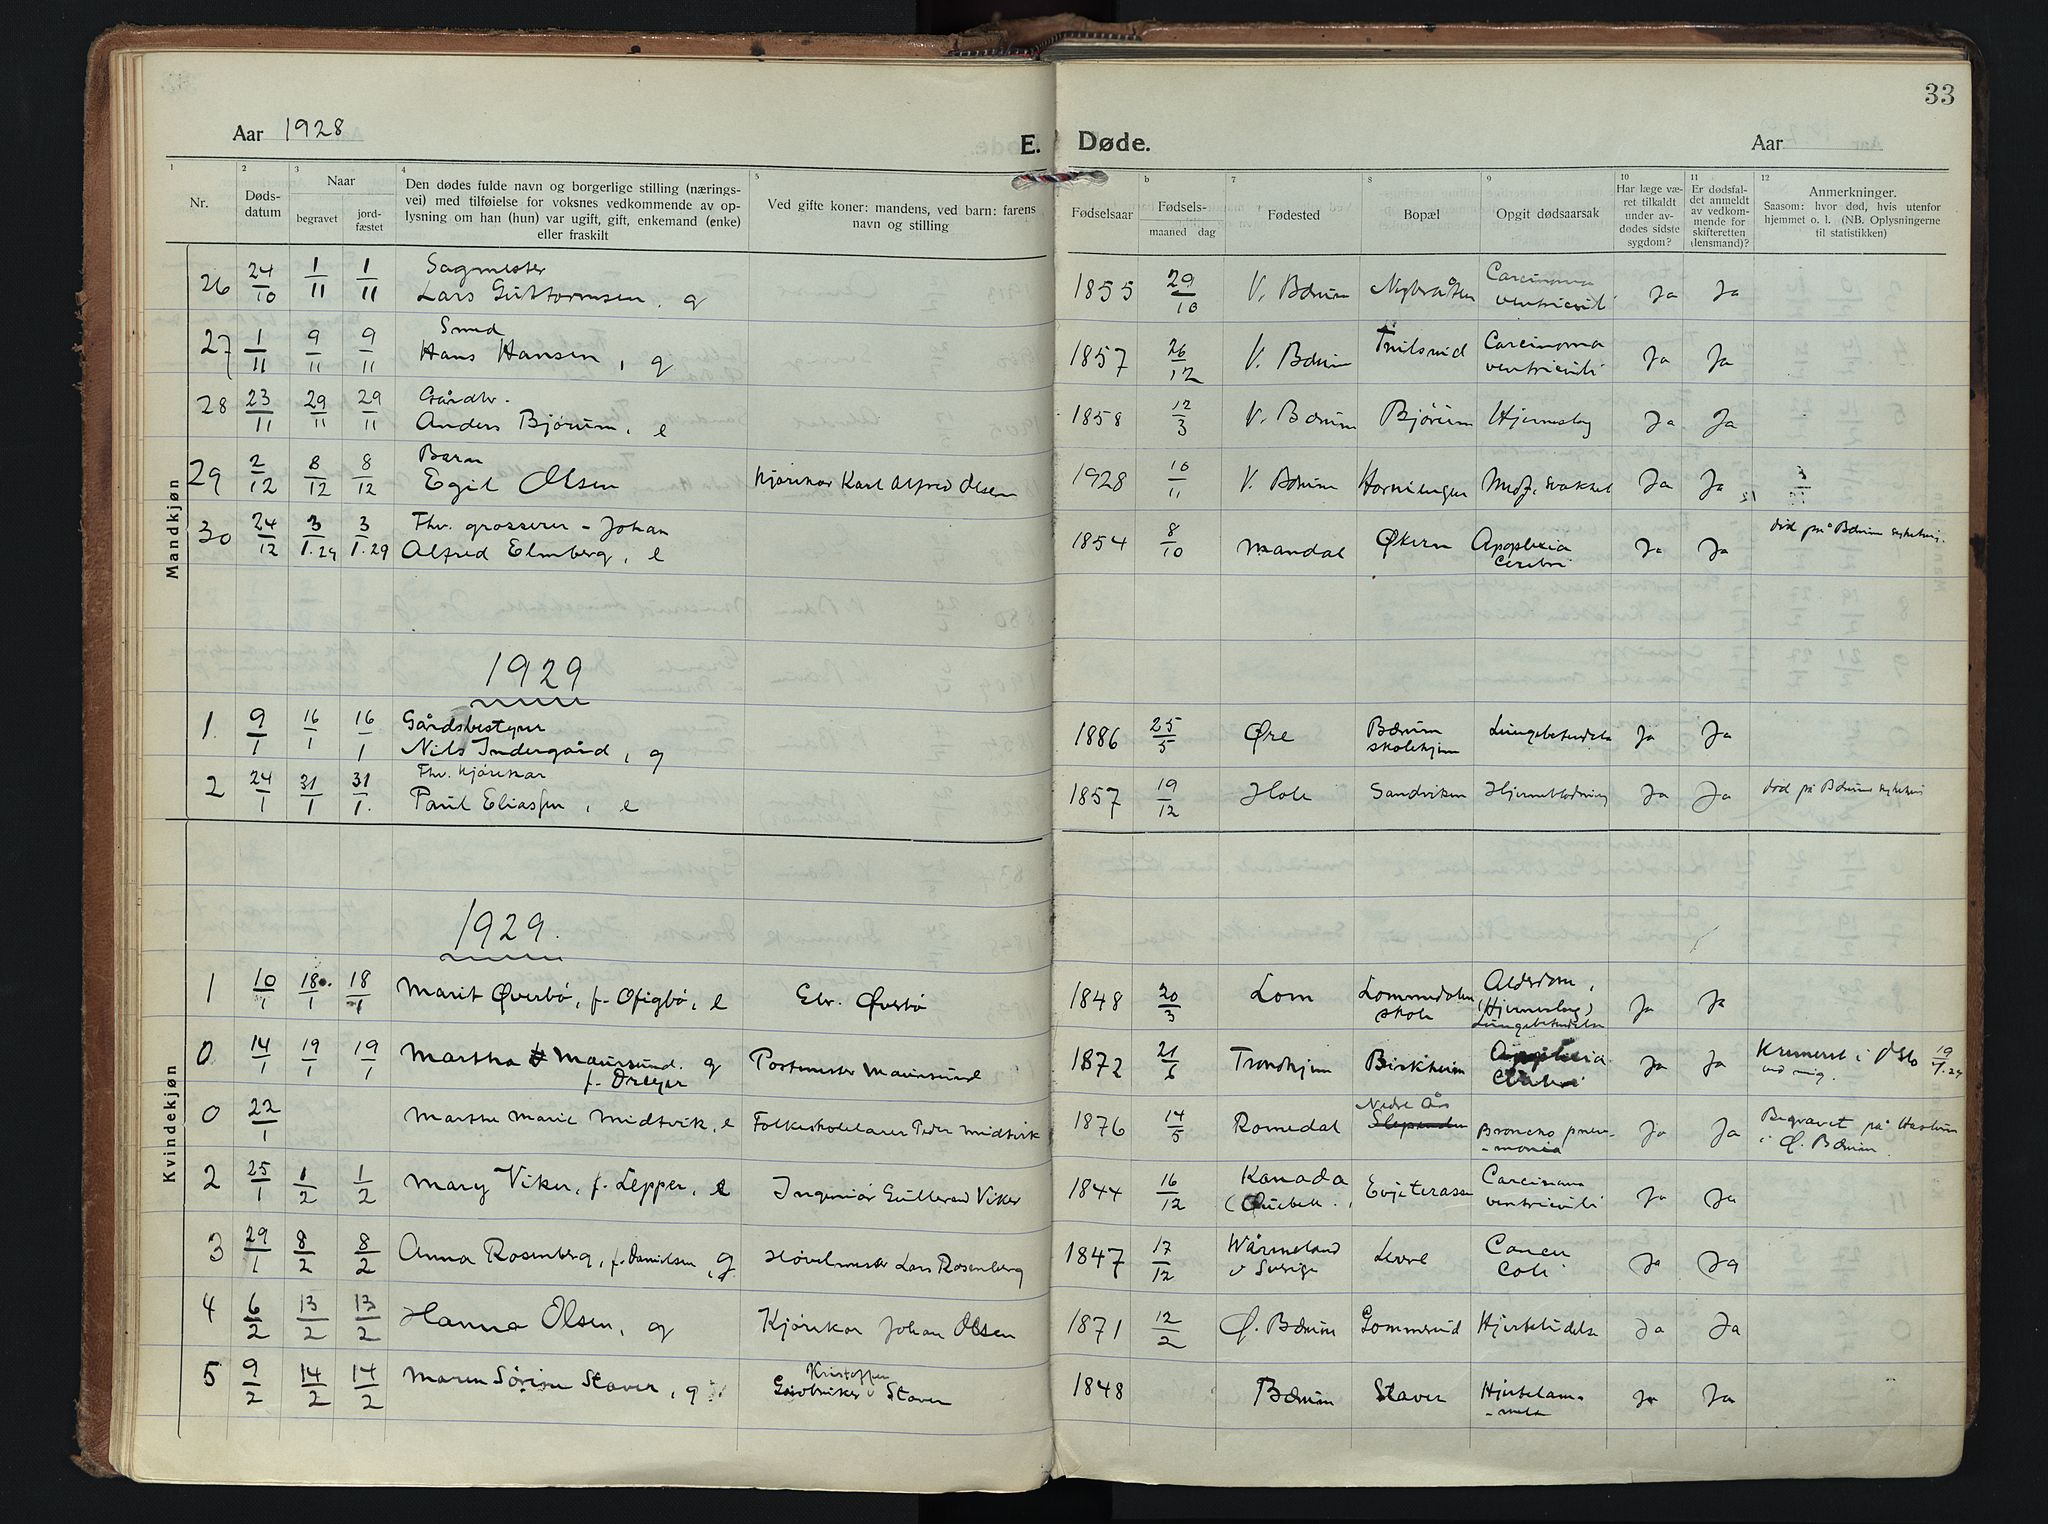 33
Aar 1928
E. Døde.
Aar
1 2 3 4 5 6 7 8 9 10 11 12
Nr.
Døds-
datum
Naar
begravet
jord-
fæstet
Den dødes fulde navn og borgerlige stilling (nærings-
vei) med tilføielse for voksnes vedkommende av op-
lysning om han (hun) var ugift, gift, enkemand (enke)
eller fraskilt
Ved gifte koner: mandens, ved barn: farens
navn og stilling
Fødselsaar
Fødsels-
maaned dag
Fødested
Bopæl
Opgit dødsaarsak
Har læge væ-
ret tilkaldt
under av-
dødes sidste
sygdom?
Er dødsfal-
det anmeldt
av vedkom-
mende for
skifteretten
(lensmand)?
Anmerkninger.
Saasom: hvor død, hvis utenfor
hjemmet o. l. (NB. Oplysningerne
til statistikken)
Mandkjøn
26 24/10 1/11 1/11 Sagmester
Lars Guttormsen, g 1855 29/10 V. Bærum Nybråten Carcinoma
ventriculi Ja Ja
27 1/11 9/11 9/11 Smed
Hans Hansen, g 1857 26/12 V. Bærum Carcinoma
ventriculi Ja Ja
28 23/11 29/11 29/11 Gårdbr.
Anders Bjørum, e 1858 12/3 V. Bærum Bjørum Hjerneslag Ja Ja
29 2/12 8/12 8/12 Barn
Egil Olsen Kjørekar Karl Alfred Olsen 1928 10/11 V. Bærum Medf. svakhet Ja Ja
30 24/12 3/1.29 3/1.29 Fhv. grosserer - Johan
Alfred Elmberg, e 1854 8/10 Mandal Økern Apoplexia
Cerebri Ja Ja død på Bærum sykehus.
1929
1. 9/1 16/1 16/1 Gårdsbestyrer
Nils Indergård, g 1886 25/5 Øre Bærum
skolehjem Lungebetendelse Ja Ja
2 24/1 31/1 31/1. Fhv. kjørekar
Paul Eliassen, e 1857 19/12 Hole Sandviken Hjerneblødning Ja Ja død på Bærum sykehus
Kvindekjøn
1929.
1 10/1 18/1 18/1 Marit Øverbø, f. Ofigbø, e Elr. Øverbø 1848 20/3 Lom Lommedalen
skole Alderdom,
(Hjerneslag)
Lungebetendelse Ja Ja
0 14/1 19/1 19/1 Martha Maursund. g
f. Dreyer Postmester Maursund 1872 21/6 Trondhjem Birkheim Apoplexia
Cerebri Ja Ja Kremert i Oslo 19/1.29
ved mig.
0 22/1 Marthe Marie Midtvik, e Folkeskolelærer Peder Midtvik 1876 14/5 Romedal Nedre Ås
Slependen Broncho pneu-
-monia Ja Ja Begravet på Haslum
i Ø. Bærum.
2 25/1 1/2 1/2 Mary Viker, f. Lepper, e Ingeniør Gulbrand Viker 1844 16/12 Kanada
(Quebek. Evjeterasse Carcinoma
ventriculi Ja Ja
3 29/1 8/2 8/2 Anna Rosenberg, f. Danielsen, g. Høvelmester Lars Rosenberg 1847 17/12 Wärmeland
i Sverige Levre Cancer
Coli Ja Ja
4 6/2 13/2 13/2 Hanna Olsen, g Kjørekar Johan Olsen 1871 12/2 Ø. Bærum Gommerud Hjertelidelse Ja Ja
5 9/2 14/2 14/2 Maren Sørine Staver, g Kristoffer
Gårdbruker Staver 1848 Bærum Staver Hjertelam-
-melse Ja Ja